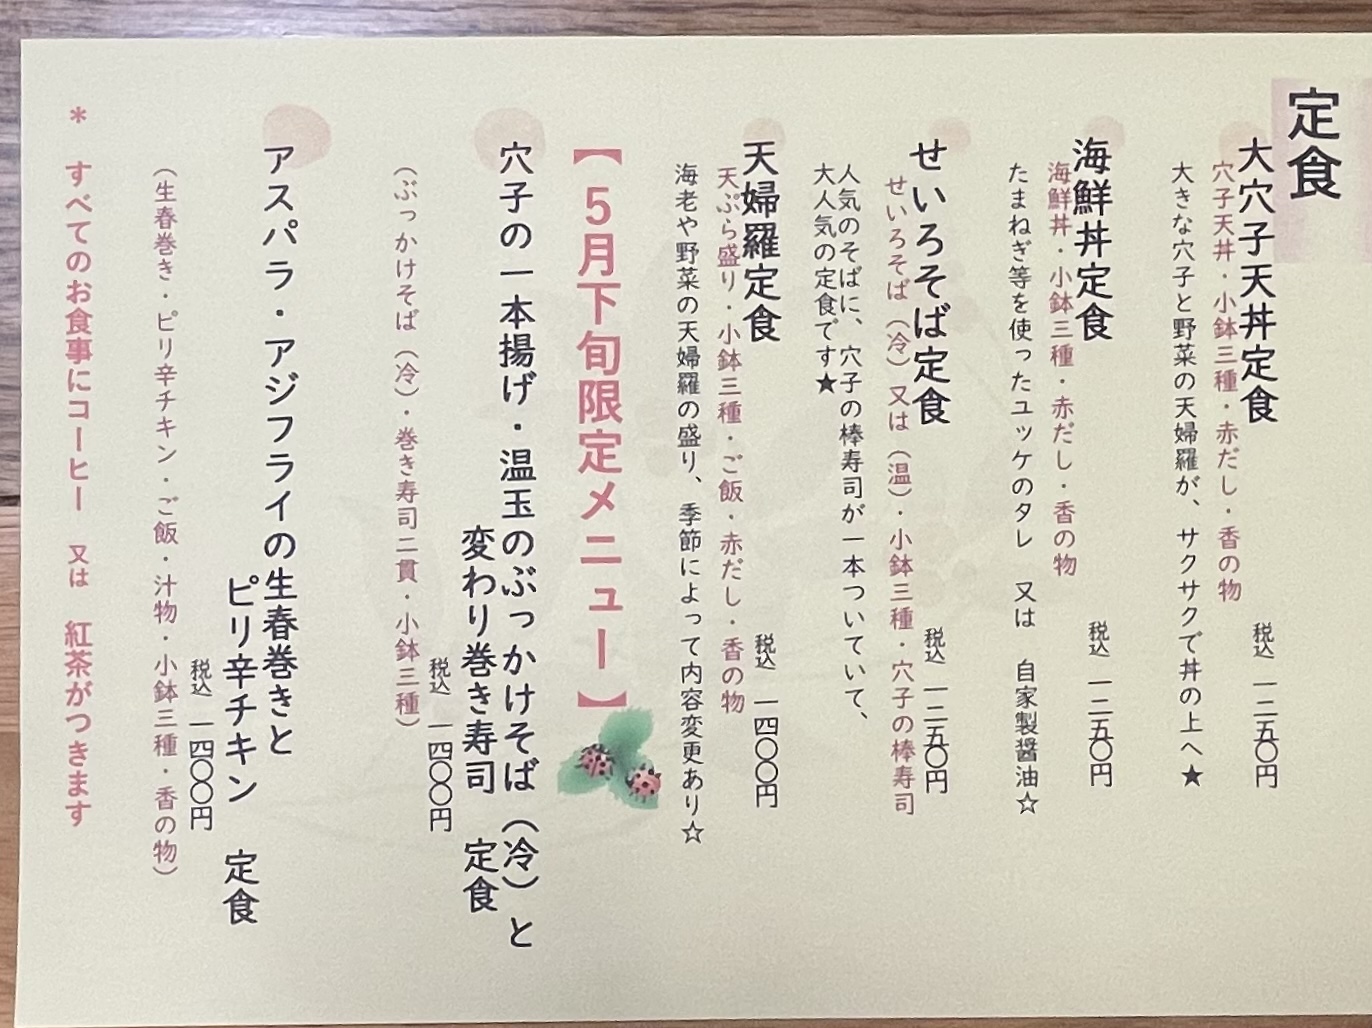 定食
大穴子天丼定食
穴子天丼・小鉢三種・赤だし・香の物
税込 一二五〇円
大きな穴子と野菜の天婦羅が、サクサクで丼の上へ★
海鮮丼定食
海鮮丼・小鉢三種・赤だし・香の物
税込 一二五〇円
たまねぎ等を使ったユッケのタレ 又は 自家製醤油☆
せいろそば定食
せいろそば(冷)又は(温)・小鉢三種・穴子の棒寿司
税込 一二五〇円
人気のそばに、穴子の棒寿司が一本ついていて、
大人気の定食です★
天婦羅定食
天ぷら盛り・小鉢三種・ご飯・赤だし・香の物
税込 一四〇〇円
海老や野菜の天婦羅の盛り、季節によって内容変更あり☆
【5月下旬限定メニュー】
穴子の一本揚げ・温玉のぶっかけそば(冷)と
変わり巻き寿司 定食
税込 一四〇〇円
(ぶっかけそば(冷)・巻き寿司二貫・小鉢三種)
アスパラ・アジフライの生春巻きと
ピリ辛チキン 定食
税込 一四〇〇円
(生春巻き・ピリ辛チキン・ご飯・汁物・小鉢三種・香の物)
* すべてのお食事にコーヒー 又は 紅茶がつきます